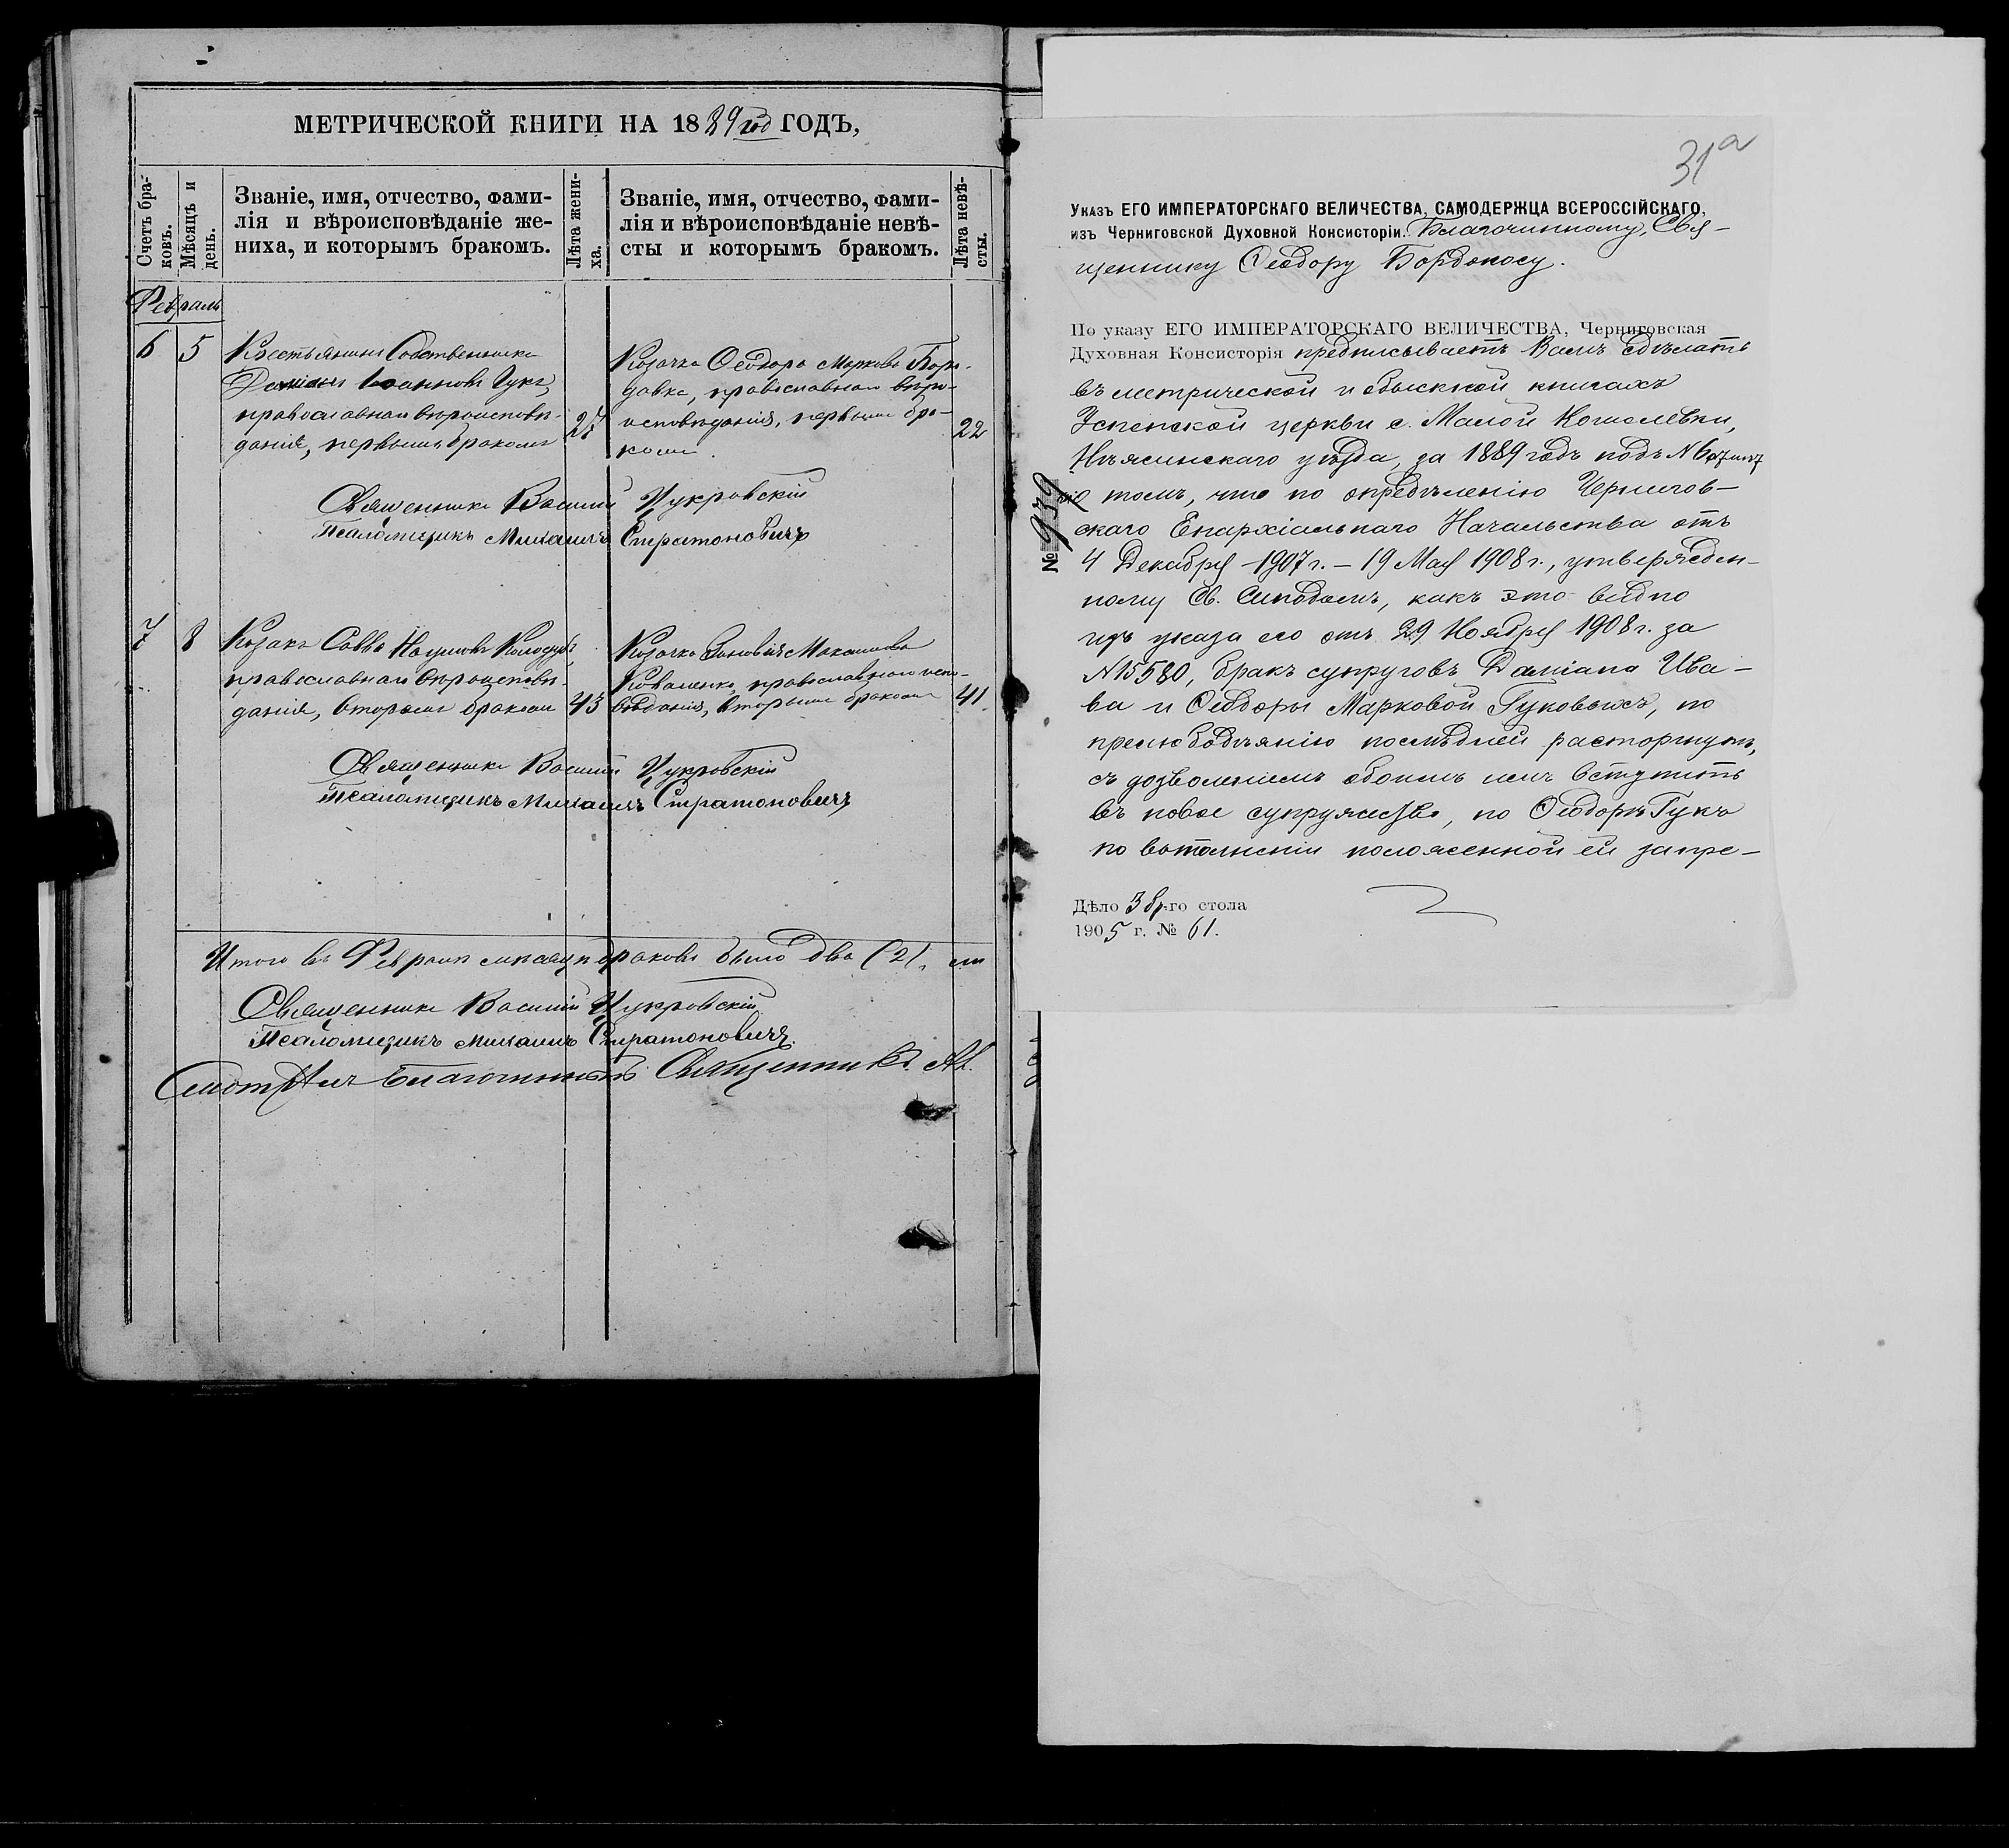 МЕТРИЧЕСКОЙ КНИГИ НА 1889 год ГОДЪ,
Счетъ бра-
ковъ.
Мѣсяцъ и
день.
Званіе, имя, отчество, фами-
лія и вѣроисповѣданіе же-
ниха, и которымъ бракомъ.
Лѣта жени-
ха.
Званіе, имя, отчество, фами-
лія и вѣроисповѣданіе невѣ-
сты и которымъ бракомъ.
Лѣта невѣ-
сты.
Февраль
6 5
Крестьянинъ Собственникъ
Даміанъ Іоанновъ Гукъ,
православнаго вѣроисповѣ-
данія, первымъ бракомъ
27
Козачка Ѳеодора Маркова Бор-
давка, православнаго вѣро-
исповѣданія, первымъ бра-
комъ.
22
Священникъ Василій Цукровскій
Псаломщикъ Михаилъ Стратоновичъ
7 8
Козакъ Савва Наумовъ
православнаго вѣроисповѣ-
данія, вторымъ бракомъ
43
Козачка Зиновія Максимова
Коваленко, православнаго испо-
вѣданія, вторымъ бракомъ
41.
Священникъ Василій Цукровскій
Псаломщикъ Михаилъ Стратоновичъ
Итого въ Февралѣ мѣсяцѣ браковъ было два (2).
Священникъ Василій Цукровскій
Псаломщикъ Михаилъ Стратоновичъ.
Смотрѣлъ Благочинный Священникъ
31а
Указъ ЕГО ИМПЕРАТОРСКАГО ВЕЛИЧЕСТВА, САМОДЕРЖЦА ВСЕРОССІЙСКАГО,
изъ Черниговской Духовной Консисторіи. Благочинному, Свя-
щеннику Ѳеодору Бордоносу.
По указу ЕГО ИМПЕРАТОРСКАГО ВЕЛИЧЕСТВА, Черниговская
Духовная Консисторія предписываетъ Вамъ сдѣлать
въ метрической и обыскной книгахъ
Успенской церкви с. Малой Кошелевки,
Нѣжинскаго уѣзда, за 1889 годъ подъ №6
о томъ, что по опредѣленію Чернигов-
скаго Епархіальнаго Начальства отъ
4 Декабря 1907 г. – 19 Мая 1908 г., утвержден-
ному Св. Синодомъ, какъ это видно
изъ указа его отъ 29 Ноября 1908 г. за
№15580, бракъ супруговъ Даміана Ива-
ва и Ѳеодоры Марковой Гуковыхъ, по
прелюбодѣянію послѣдней расторгнутъ,
съ дозволеніемъ обоимъ имъ вступить
въ новое супружество, но Ѳеодорѣ Гукъ
по выполненіи положенной ей запре-
№ 939
Дѣло 3 бр-го стола
1905 г. № 61.